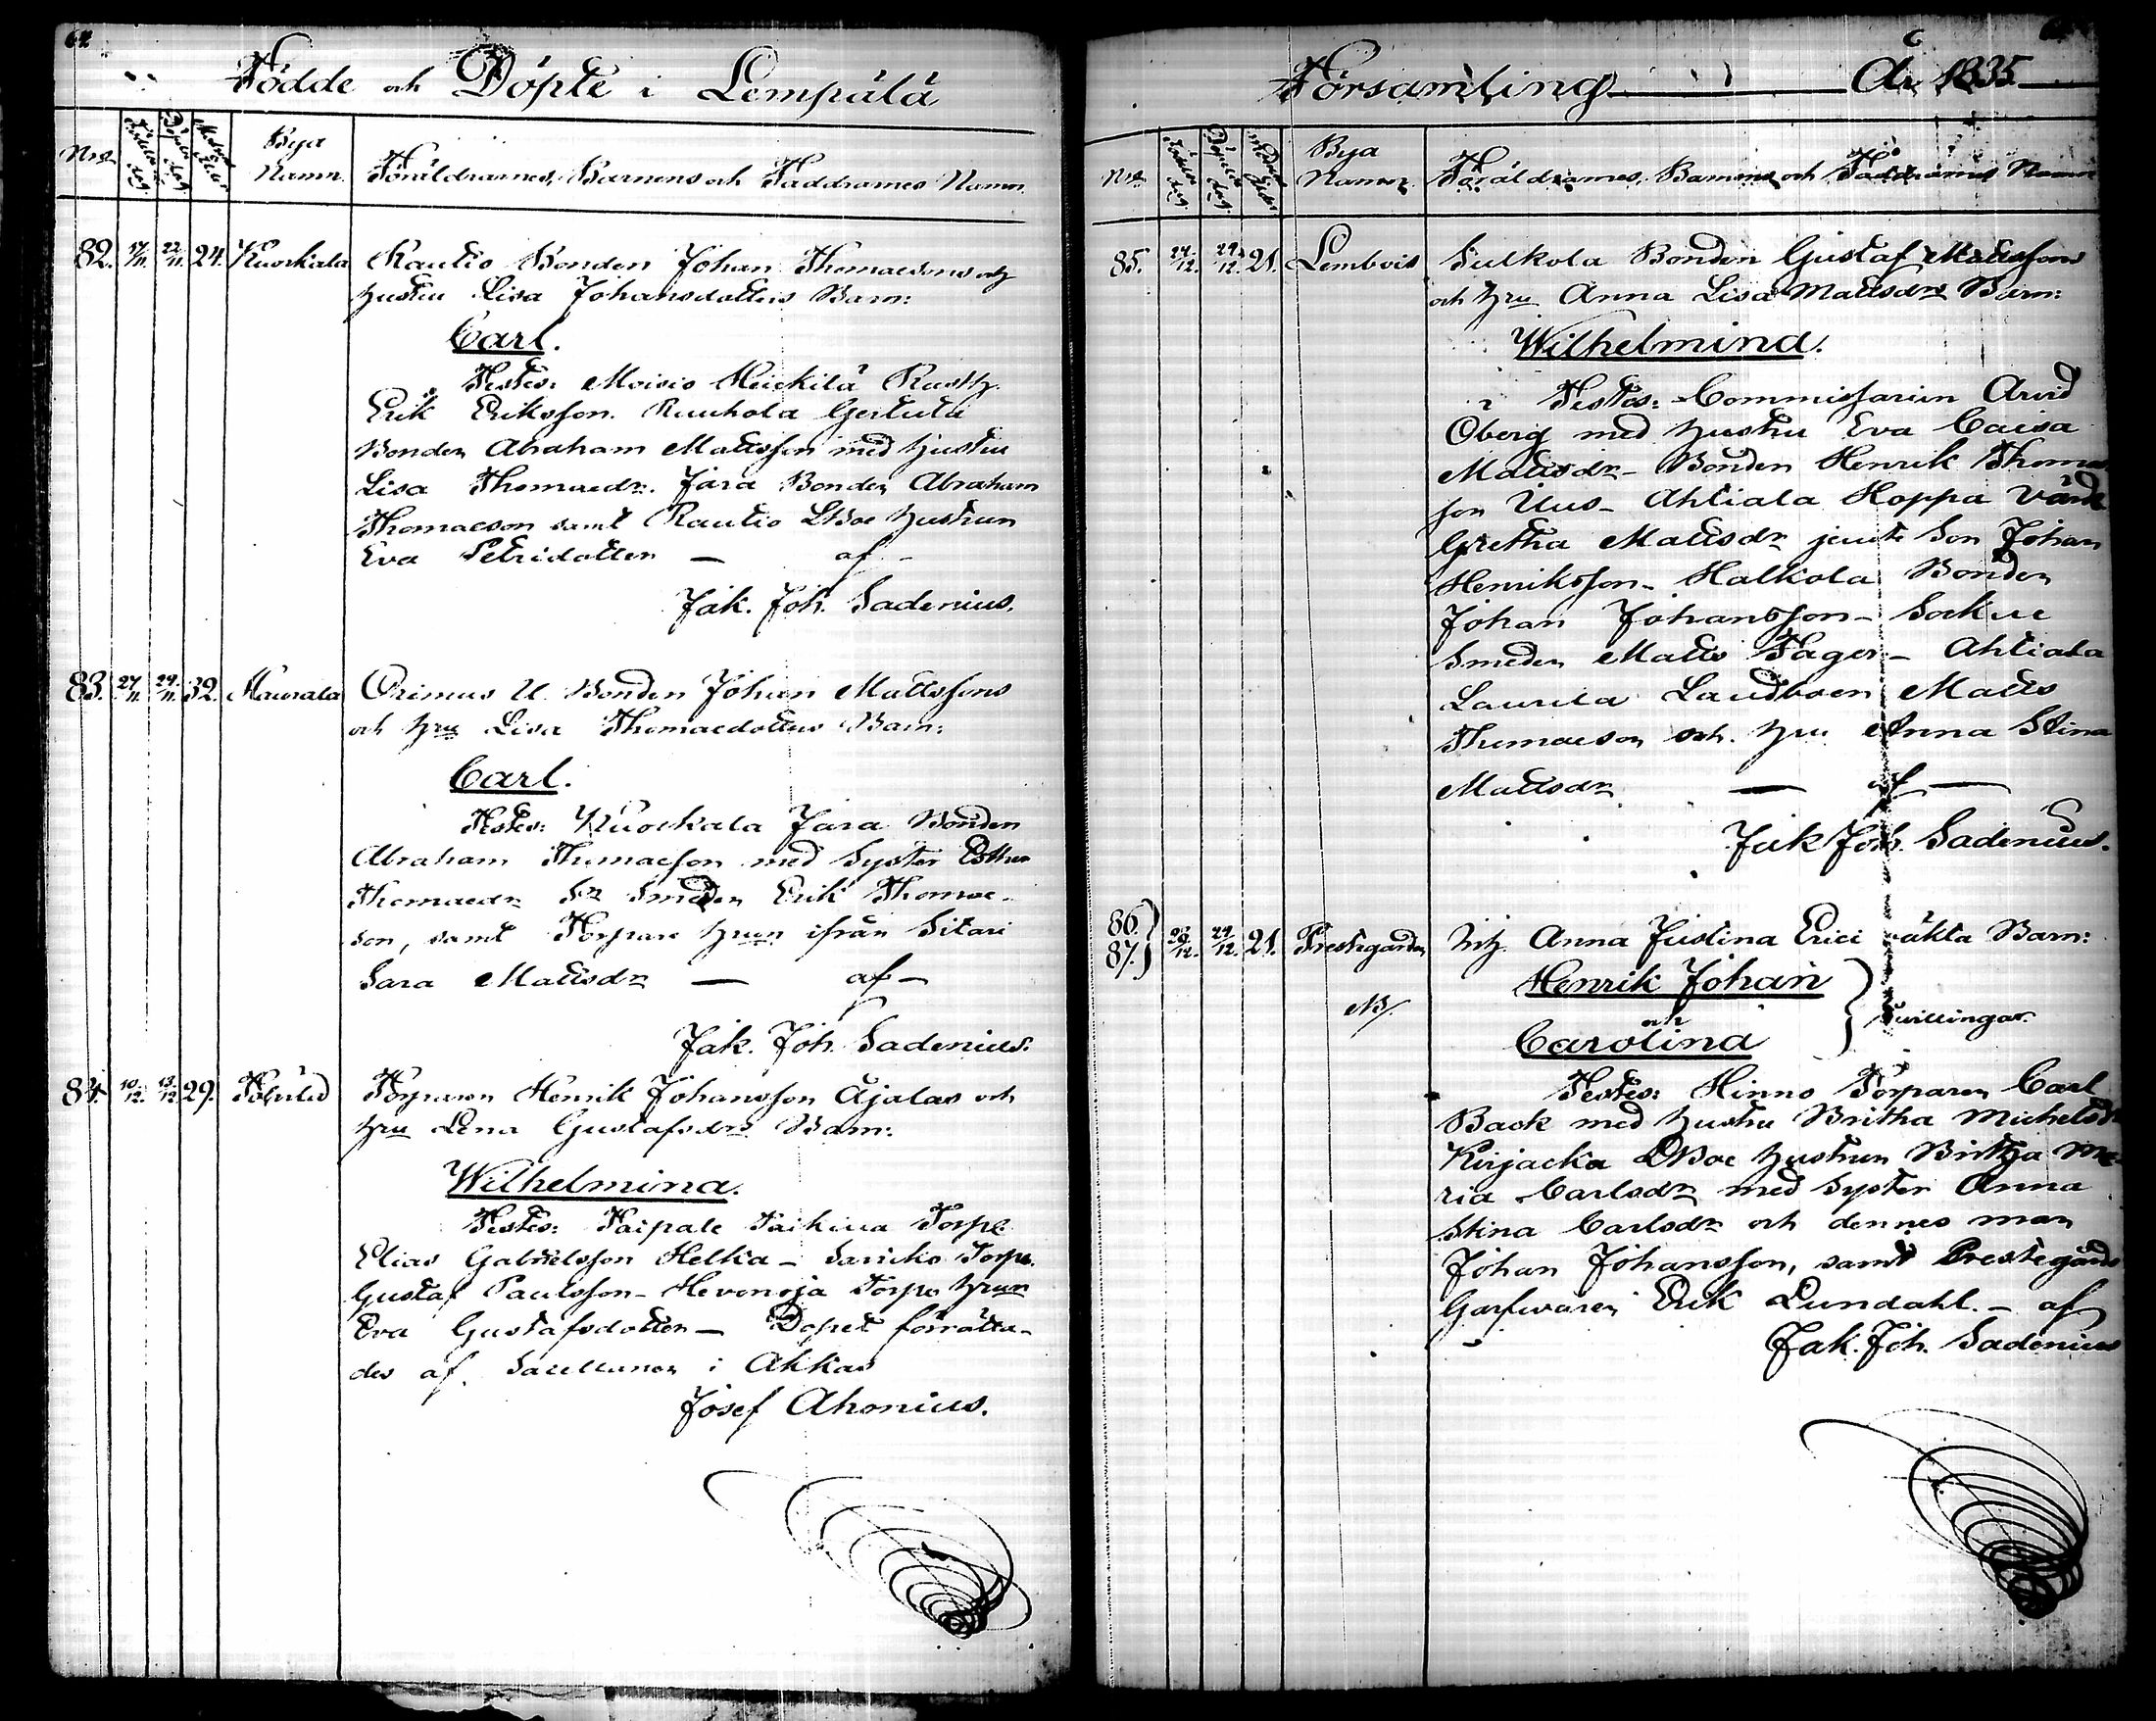 64
Födde och Döpte i Lempälä
Nro Födelse dag. Döpelse dag. Modrens ålder Bya Namn. Föräldrarnes, Barnens och Faddrarnes Namn.
82. 17/11. 22/11. 24. Kuockala Rautio Bonden Johan Thomaesons och
hustru Lisa Johansdotters Barn:
Carl.
Testes: Moisio Heickilä Rusth.
Erik Eriksson. Ruuhola Gertula
Bonden Abraham Mattsson med hustru
Lisa Thomaedr. Jara Bonden Abraham
Thomaeson samt Rautio LBoe hustrun
Eva Petridotter — af –
Jak. Joh. Sadenius.
83. 27/11. 29/11. 32. Maurala Orimus U. Bonden Johan Mattssons
och hru Lisa Thomaedotters Barn:
Carl.
Testes: Kuockala Jara Bonden
Abraham Thomaesson med Syster Esther
Thomaedr Sn Smeden Erik Thomae-
son, samt Torpare hrun ifrån Sitari
Sara Mattsdr — af –
Jak. Joh. Sadenius.
84. 10/12. 13/12 29. Torparen Henrik Johansson Äjälas och
hru Lena Gustafsdrs Barn:
Wilhelmina.
Testes: Taipale Torp.
Elias Gabrielsson Helka – Torp.
Gustaf Paulsson – Hevonoja Torp. hrun
Eva Gustafsdotter – Dopet förrätta-
des af. i Akkas
Josef Ahonius.
Församling År 1835
Nro Födelse dag. Döpelse dag. Modrens ålder Bya Namn. Föräldrarnes, Barnens och Faddrarnes Namn
85. 24/12. 29/12. 21. Lembois Sulkola Bonden Gustaf Mattssons
och hru Anna Lisa Mattsdrs Barn:
Wilhelmina.
Testes: Commissarien Arvid
Öberg med hustru Eva Caisa
Mattsdr – Bonden Henrik Thomas
son Uus – Ahtiala Hoppa
Gretha Mattsdr jemte Son Johan
Henriksson – Halkola Bonden
Johan Johansson – Sockne
Smeden Matts Fager – Ahtiala
Laurila Landboen Matts
Thomaeson och hru Anna Stina
Mattsdr — af —
Jak Joh. Sadenius.
86.
87. 23/12. 29/12. 21. Prestegården Anna Justina Erici oäkta Barn:
Henrik Johan
NB. och Tvillingar.
Carolina
Testes: Hinno Torparen Carl
Back med hustru Britha Michelsdr
Kirjacka LBoe hustrun Britha Ma-
ria Carlsdr med Syster Anna
Stina Carlsdr och dennes man
Johan Johansson, samt Prestegårds
Garfwaren Erik Lundahl. – af
Jak. Joh. Sadenius